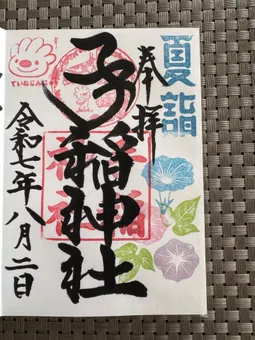 夏詣
奉拝
手稲神社
ていねじんじゃ
令和七年八月二日